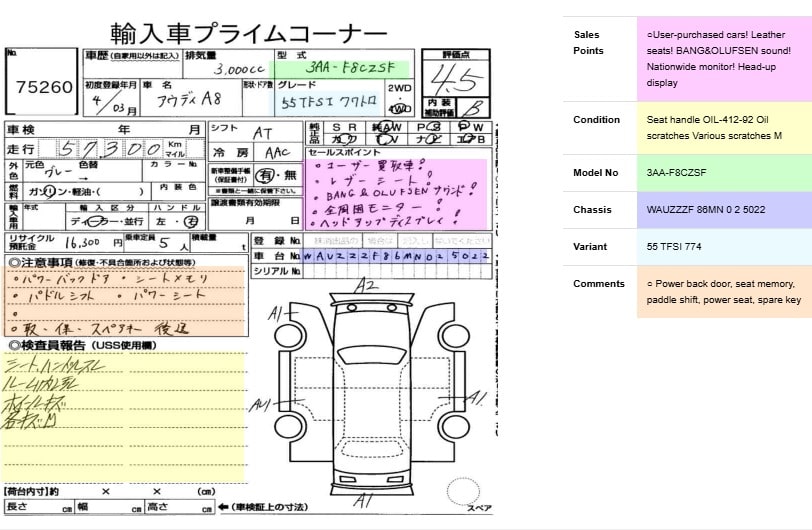 輸入車プライムコーナー
No.
75260
車歴 (自家用以外は記入)
排気量
3,000cc
型式
3AA-F8CZSF
評価点
4.5
初度登録年月
4/03月
車名
アウディA8
形状・ドア数
グレード
55TFSI クワトロ
2WD
4WD
内装
補助評価
B
車検 年 月
シフト
AT
純正品
SR
AW
PS
PW
TV
走行
57,300
Km
マイル
冷房
AAC
セールスポイント
・ユーザー買取車!
・レザーシート!
・BANG & OLUFSENサウンド!
・全周囲モニター!
・ヘッドアップディスプレイ!
外色
元色
グレー
色替
→
カラーNo.
新車整備手帳
(保証書付)
有・無
※書類と一緒に保管下さい。
燃料
ガソリン・軽油・( )
内装色
譲渡書類有効期限
月 日
輸入車用
年式
輸入区分
ディーラー・並行
ハンドル
左・右
リサイクル預託金
16,300円
乗車定員
5人
積載量
t
登録No.
車台No.
WAUZZZF86MN025022
シリアルNo.
◎注意事項 (修復・不具合箇所および状態等)
・パワーバックドア ・シートメモリ
・パドルシフト ・パワーシート
・
○取・保・スペアキー 後送
◎検査員報告 (USS使用欄)
シート、ハンドルスレ
ホイールキズ
各キズM
A2
A1
A1
A1
【荷台内寸】約 × × (cm)
長さ cm 幅 cm 高さ cm
←(車検証上の寸法)
スペア
Sales Points
○User-purchased cars! Leather seats! BANG&OLUFSEN sound! Nationwide monitor! Head-up display
Condition
Seat handle OIL-412-92 Oil scratches Various scratches M
Model No
3AA-F8CZSF
Chassis
WAUZZZF 86MN 0 2 5022
Variant
55 TFSI 774
Comments
○ Power back door, seat memory, paddle shift, power seat, spare key